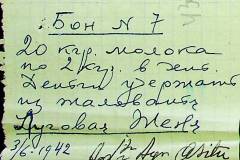 Бон N 7
20 кгр. молока
по 2 кгр. в день.
Деньги удержать
из жалования
Луговая Женя
3/6. 1942